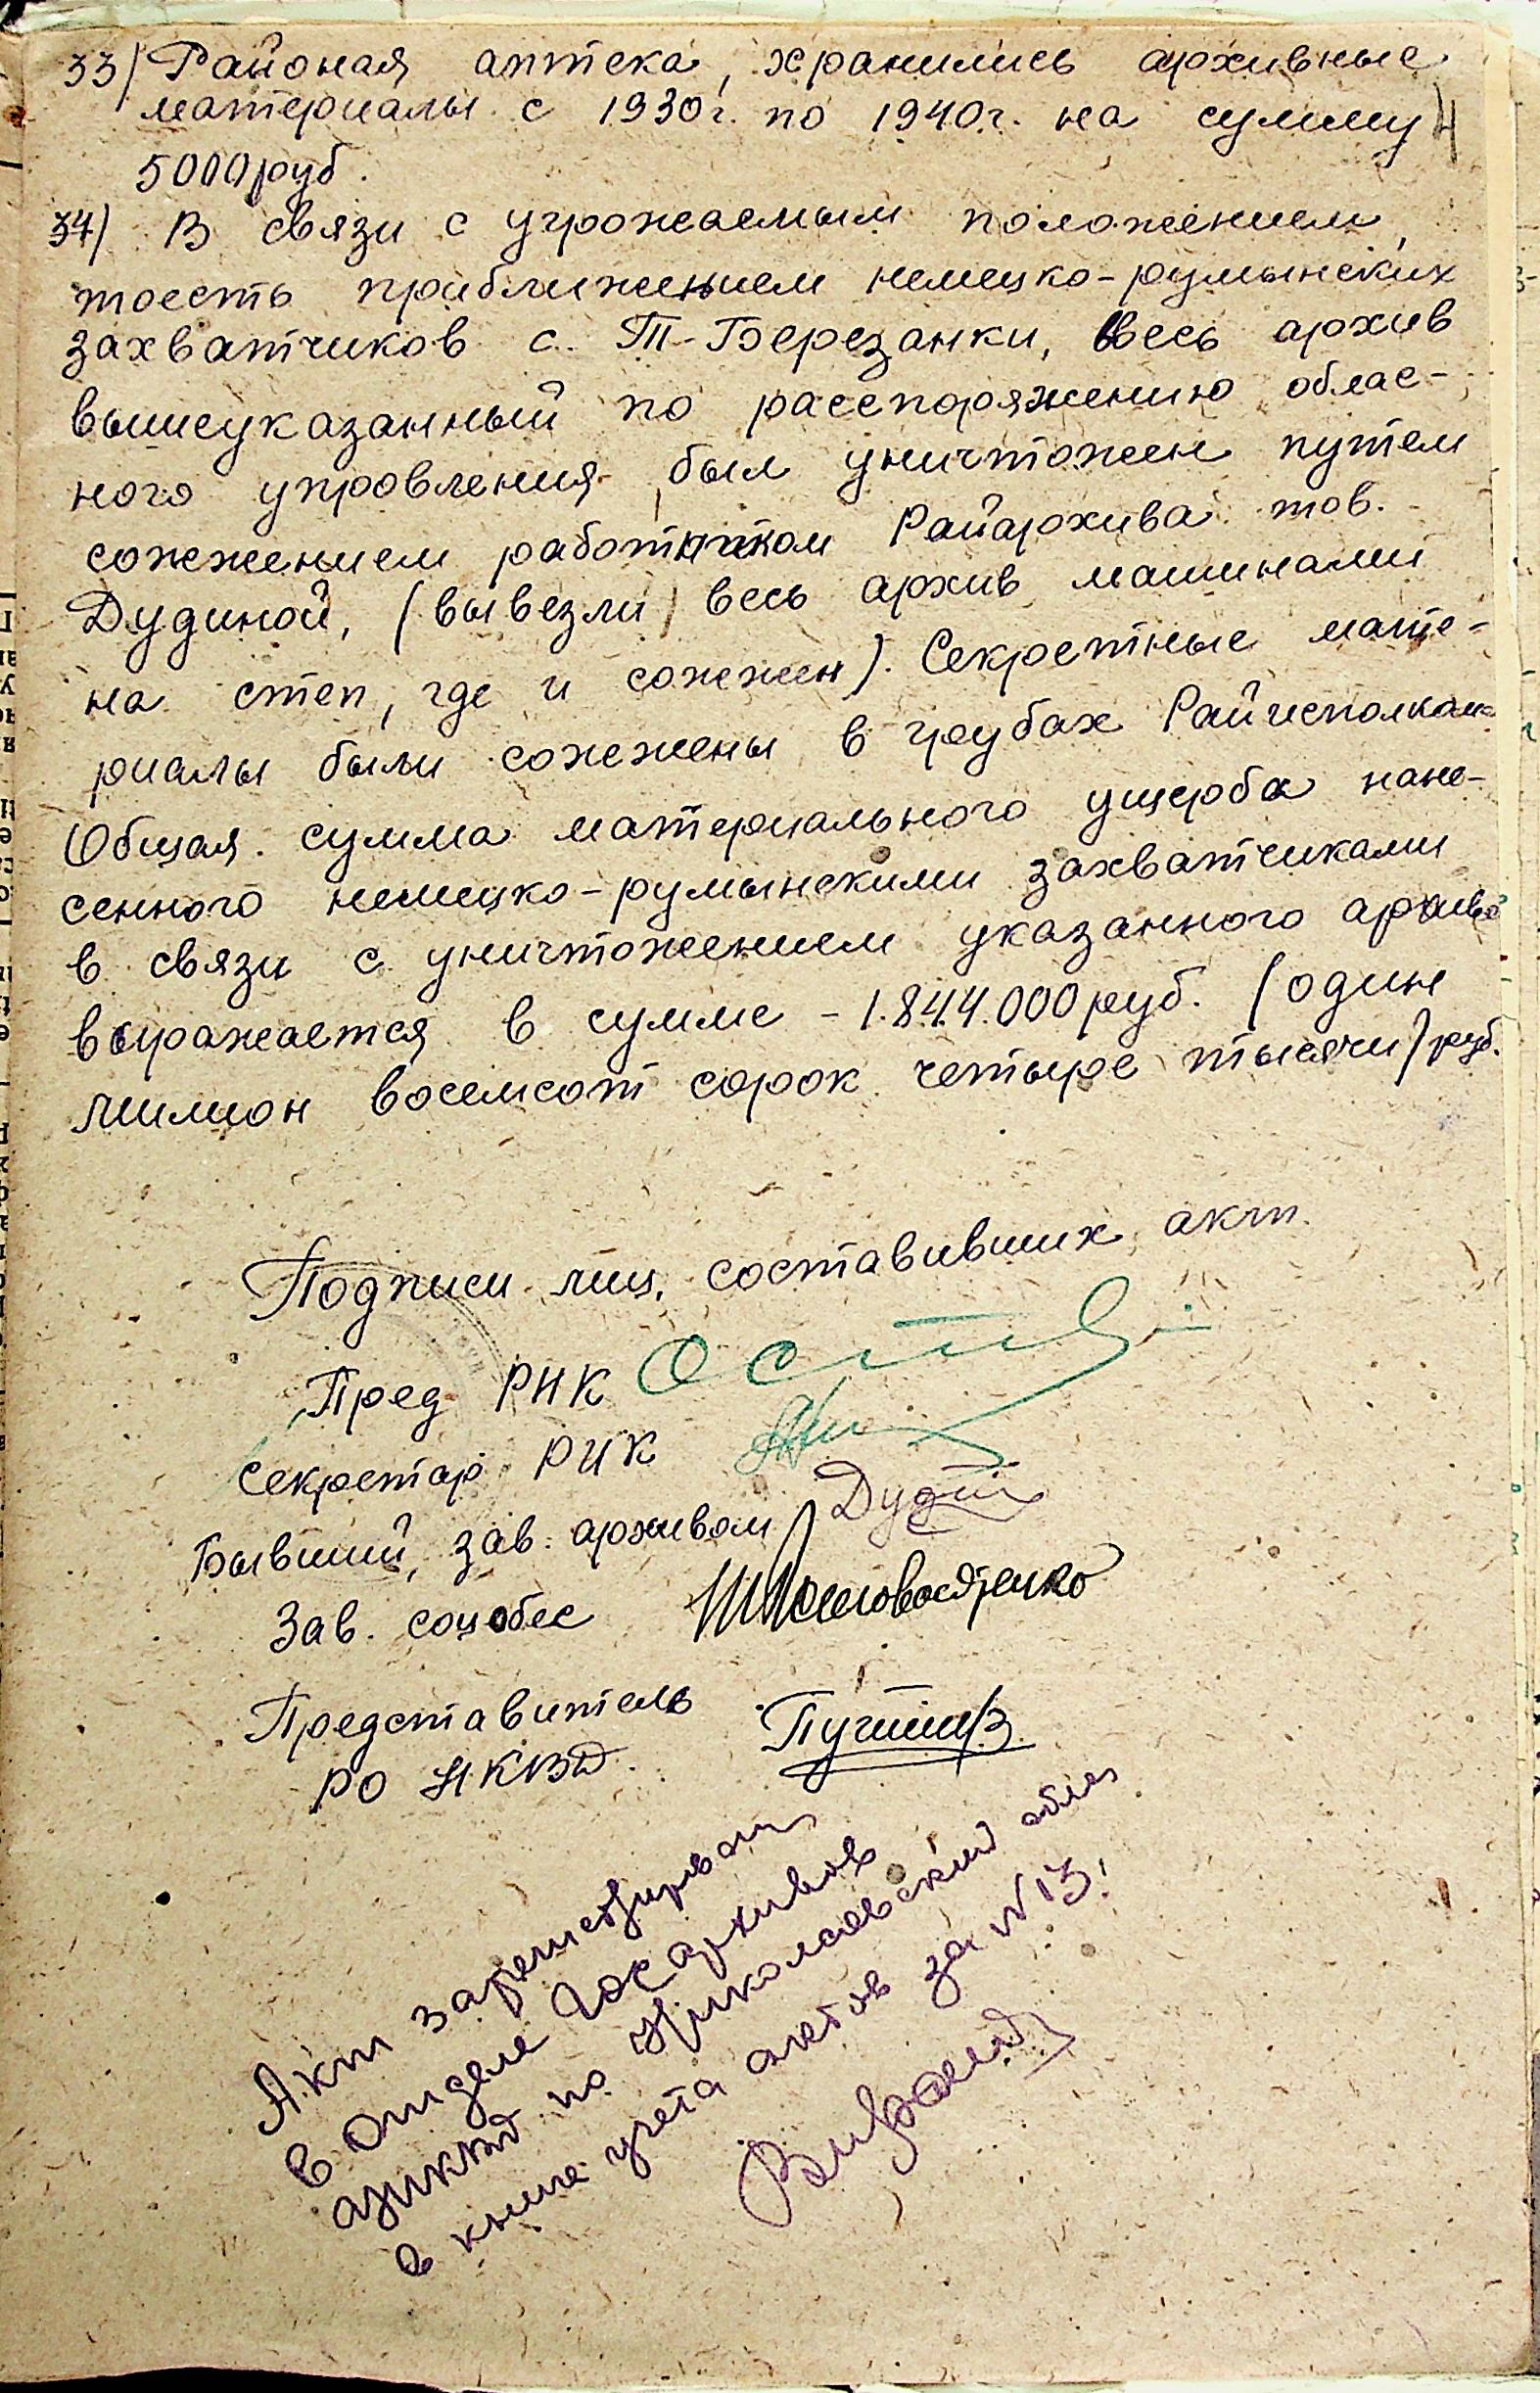 33) Районая аптека, хранились архивные
материалы с 1930г. по 1940г. на сумму 4
5000 руб.
34) В связи с угрожаемым положением,
тоесть приближением немецко-румынских
захватчиков с. Т-Березанки, весь архив
вышеуказанный по расспоряжению облас-
ного упровления был уничтожен путем
сожжением работником Райархива тов.
Дудиной, (вывезли весь архив машинами
на степ, где и сожжен). Секретные мате-
риалы были сожжены в грубах Райисполком
Общая сумма материального ущерба нане-
сенного немецко-румынскими захватчиками
в связи с уничтожением указанного архива
выражается в сумме - 1.844.000 руб. (один
милион восемсот сорок четыре тысячи) руб.
Подписи лиц, составивших акт.
Пред РИК
Секретар РИК
Бывший, зав. архивом Дудин
Зав. соцобес
Представитель
РО НКВД.
Акт зарегистрирован
в Отделе Госархивов
УНКВД по Николаевской облас
в книге учета актов за №13.